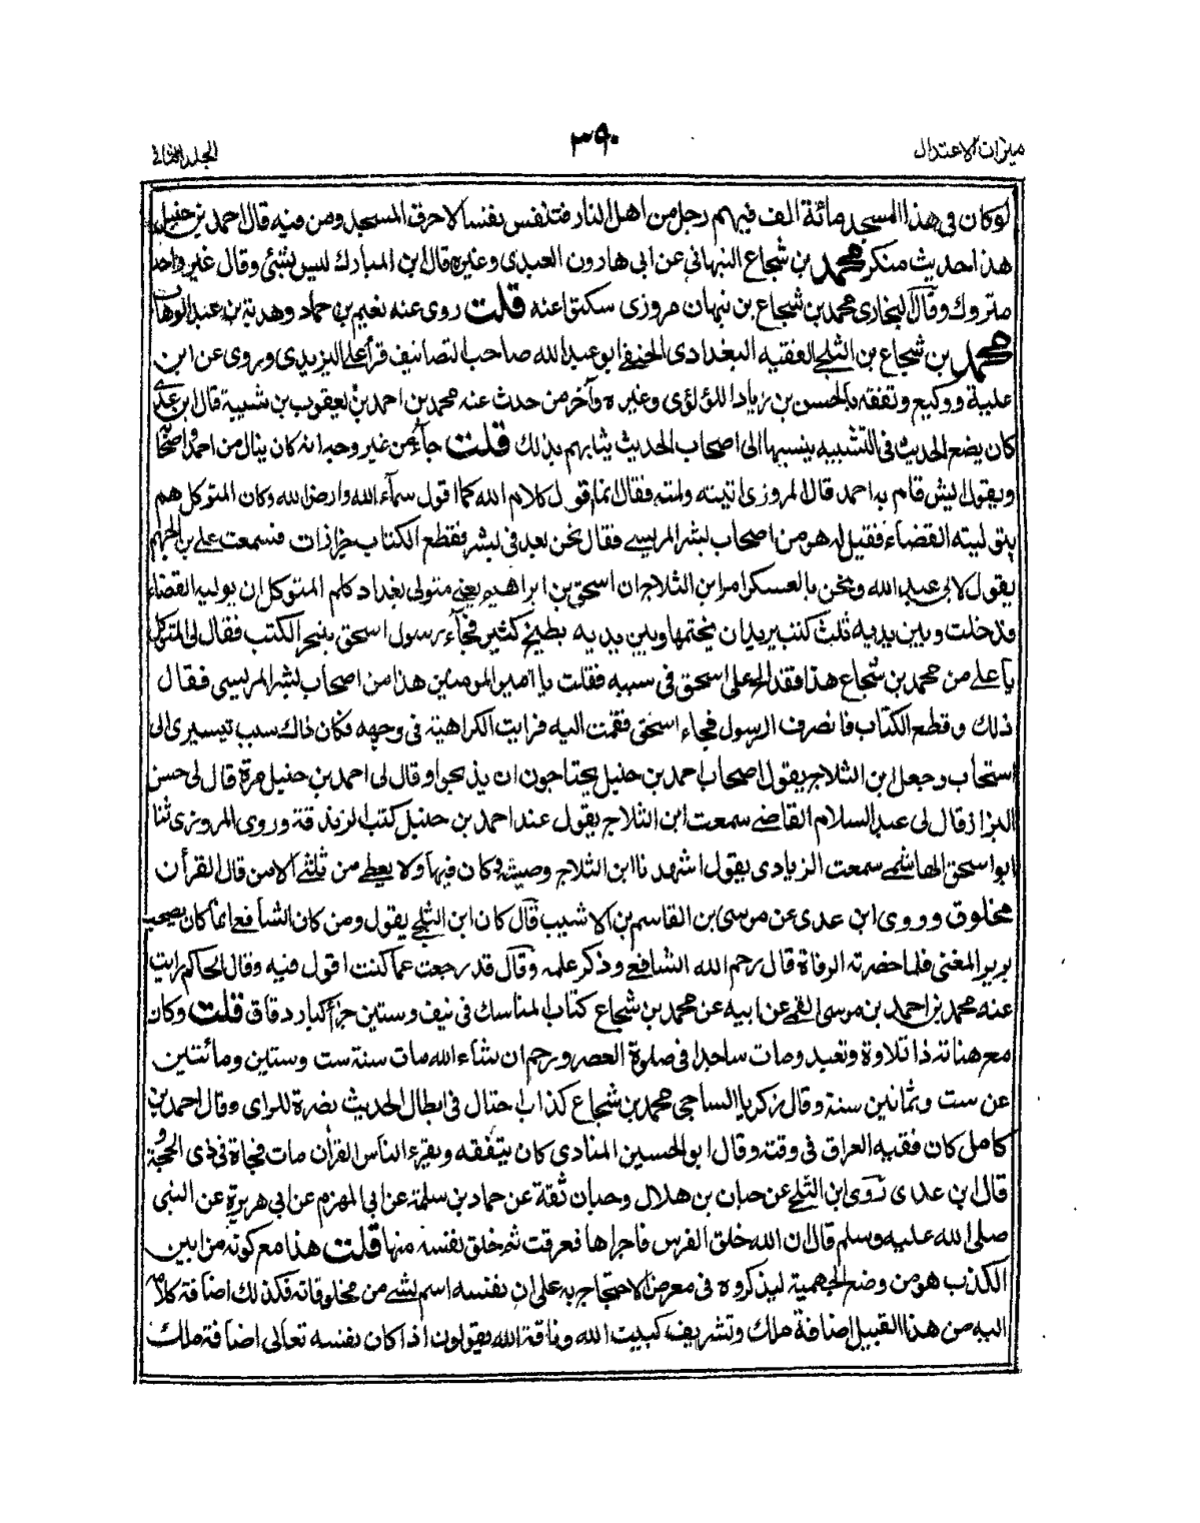 ميزان الاعتدال
٣٩٠
الجلد الثاني
لوكان فى هذا المسجد مائة الف فيهم رجل من اهل النار فتنفس نفسا لاحرق المسجد ومن فيه قال احمد بن حنبل
هذا حديث منكر محمد بن شجاع النبهانى عن ابى هارون العبدى وغيره قال ابن المبارك ليس بشئ وقال غير واحد
متروك وقال البخارى محمد بن شجاع بن نبهان مروزى سكتوا عنه قلت روى عنه نعيم بن حماد وهدية بن عبد الوهاب
محمد بن شجاع بن الثلجى الفقيه البغدادى الحنفى ابو عبد الله صاحب التصانيف قرأ على اليزيدى وروى عن ابن
علية ووكيع وتفقه بالحسن بن زياد اللؤلؤى وغيره وآخر من حدث عنه محمد بن احمد بن يعقوب بن شيبة قال ابن عدى
كان يضع الحديث فى التشبيه ينسبها الى اصحاب الحديث يثابهم بذلك قلت جاء من غير وجه انه كان ينال من احمد واصحا
ويقول ايش قام به احمد قال المروزى اتيته ولمته فقال انما قول كلام الله كما اقول سماء الله وارض الله وكان المتوكل هم
بتوليته القضاء فقيل له هو من اصحاب بشر المريسى فقال نحن بعد فى بشر فقطع الكتاب جزازات فسمعت على بن الجهم
يقول لابى عبد الله ونحن بالعسكر امر ابن الثلاج ان اسحق بن ابراهيم يعنى متولى بغداد كلم المتوكل ان يوليه القضاء
فدخلت وبين يديه ثلث كتب يريد ان يختمها وبين يديه بطيخ كثير فجاء رسول اسحق بنجز الكتب فقال لى المتوكل
يا على من محمد بن شجاع هذا فقد الح على اسحق فى سببه فقلت يا امير المومنين هذا من اصحاب بشر المريسى فقال
ذلك وقطع الكتاب فانصرف الرسول فجاء اسحق فقمت اليه فرايت الكراهية فى وجهه فكان ذاك سبب تيسيرى الى
استحاب وجعل ابن الثلاج يقول اصحاب احمد بن حنبل يحتاجون ان يذبحوا وقال لى احمد بن حنبل مرة قال لى حسن
البزاز قال لى عبد السلام القاضى سمعت ابن الثلاج يقول عند احمد بن حنبل كتب الزندقة وروى المروزى ثنا
ابو اسحق الهاشمى سمعت الزيادى يقول اشهدنا ابن الثلاج وصيته وكان فيها ولا يعطى من ثلثى الا من قال القرأن
مخلوق وروى ابن عدى عن موسى بن القاسم بن الاشيب قال كان ابن الثلجى يقول ومن كان الشافعى انما كان يصحب
بربر المغنى فلما حضرته الوفاة قال رحم الله الشافعى وذكر علمه وقال قد رجعت عما كنت اقول فيه وقال الحاكم رايت
عنه محمد بن احمد بن موسى القمى عن ابيه عن محمد بن شجاع كتاب المناسك فى نيف وستين جزأ كبار دقاق قلت وكان
مع هناته ذا تلاوة وتعبد ومات ساجدا فى صلوة العصر ورحم ان شاء الله مات سنة ست وستين ومائتين
عن ست وثمانين سنة وقال زكريا الساجى محمد بن شجاع كذاب احتال فى ابطال الحديث نصرة للراى وقال احمد بن
كامل كان فقيه العراق فى وقته وقال ابو الحسين المنادى كان يتفقه ويقرء الناس القرأن مات فجاة فى ذى الحجة و
قال ابن عدى روى ابن الثلجى عن حبان بن هلال وحبان ثقة عن حماد بن سلمة عن ابى المهزم عن ابى هريرة عن النبى
صلى الله عليه وسلم قال ان الله خلق الفرس فاجراها فعرقت ثم خلق نفسه منها قلت هذا مع كونه من ابين
الكذب هو من وضع الجهمية ليذكروه فى معرض الاحتجاج به على ان نفسه اسم لشئ من مخلوقاته فكذلك اضافة كلامه
اليه من هذا القبيل اضافة ملك وتشريف كبيت الله وناقة الله يقولون اذا كان نفسه تعالى اضافة ملك